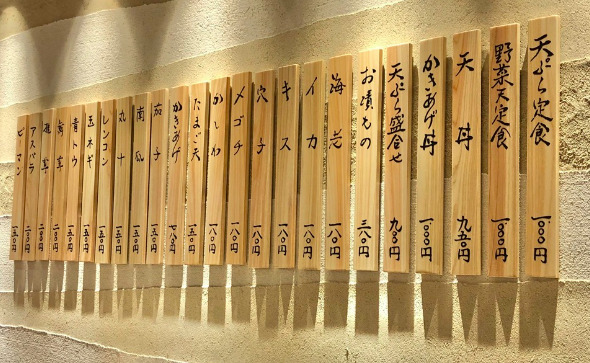 天ぷら定食 一、〇〇〇円
野菜天定食 一、〇〇〇円
天丼 九五〇円
かきあげ丼 一、〇〇〇円
天ぷら盛合せ 九〇〇円
お漬もの 三八〇円
海老 一八〇円
イカ 一八〇円
キス 一八〇円
穴子 一八〇円
メゴチ 一八〇円
かしわ 一八〇円
たまご天 一五〇円
かきあげ
茄子 一五〇円
南瓜 一五〇円
丸十 一五〇円
レンコン 一五〇円
玉ネギ 一五〇円
青トウ 一五〇円
舞茸 二〇〇円
二〇〇円
アスパラ 二〇〇円
ピーマン 一五〇円